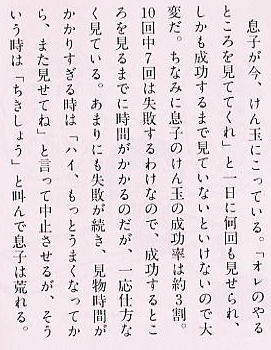 息子が今、けん玉にこっている。「オレのやる
ところを見ててくれ」と一日に何回も見せられ、
しかも成功するまで見ていないといけないので大
変だ。ちなみに息子のけん玉の成功率は約3割。
10回中7回は失敗するわけなので、成功するとこ
ろを見るまでに時間がかかるのだが、一応仕方な
く見ている。あまりにも失敗が続き、見物時間が
かかりすぎる時は「ハイ、もっとうまくなってか
ら、また見せてね」と言って中止させるが、そう
いう時は「ちきしょう」と叫んで息子は荒れる。